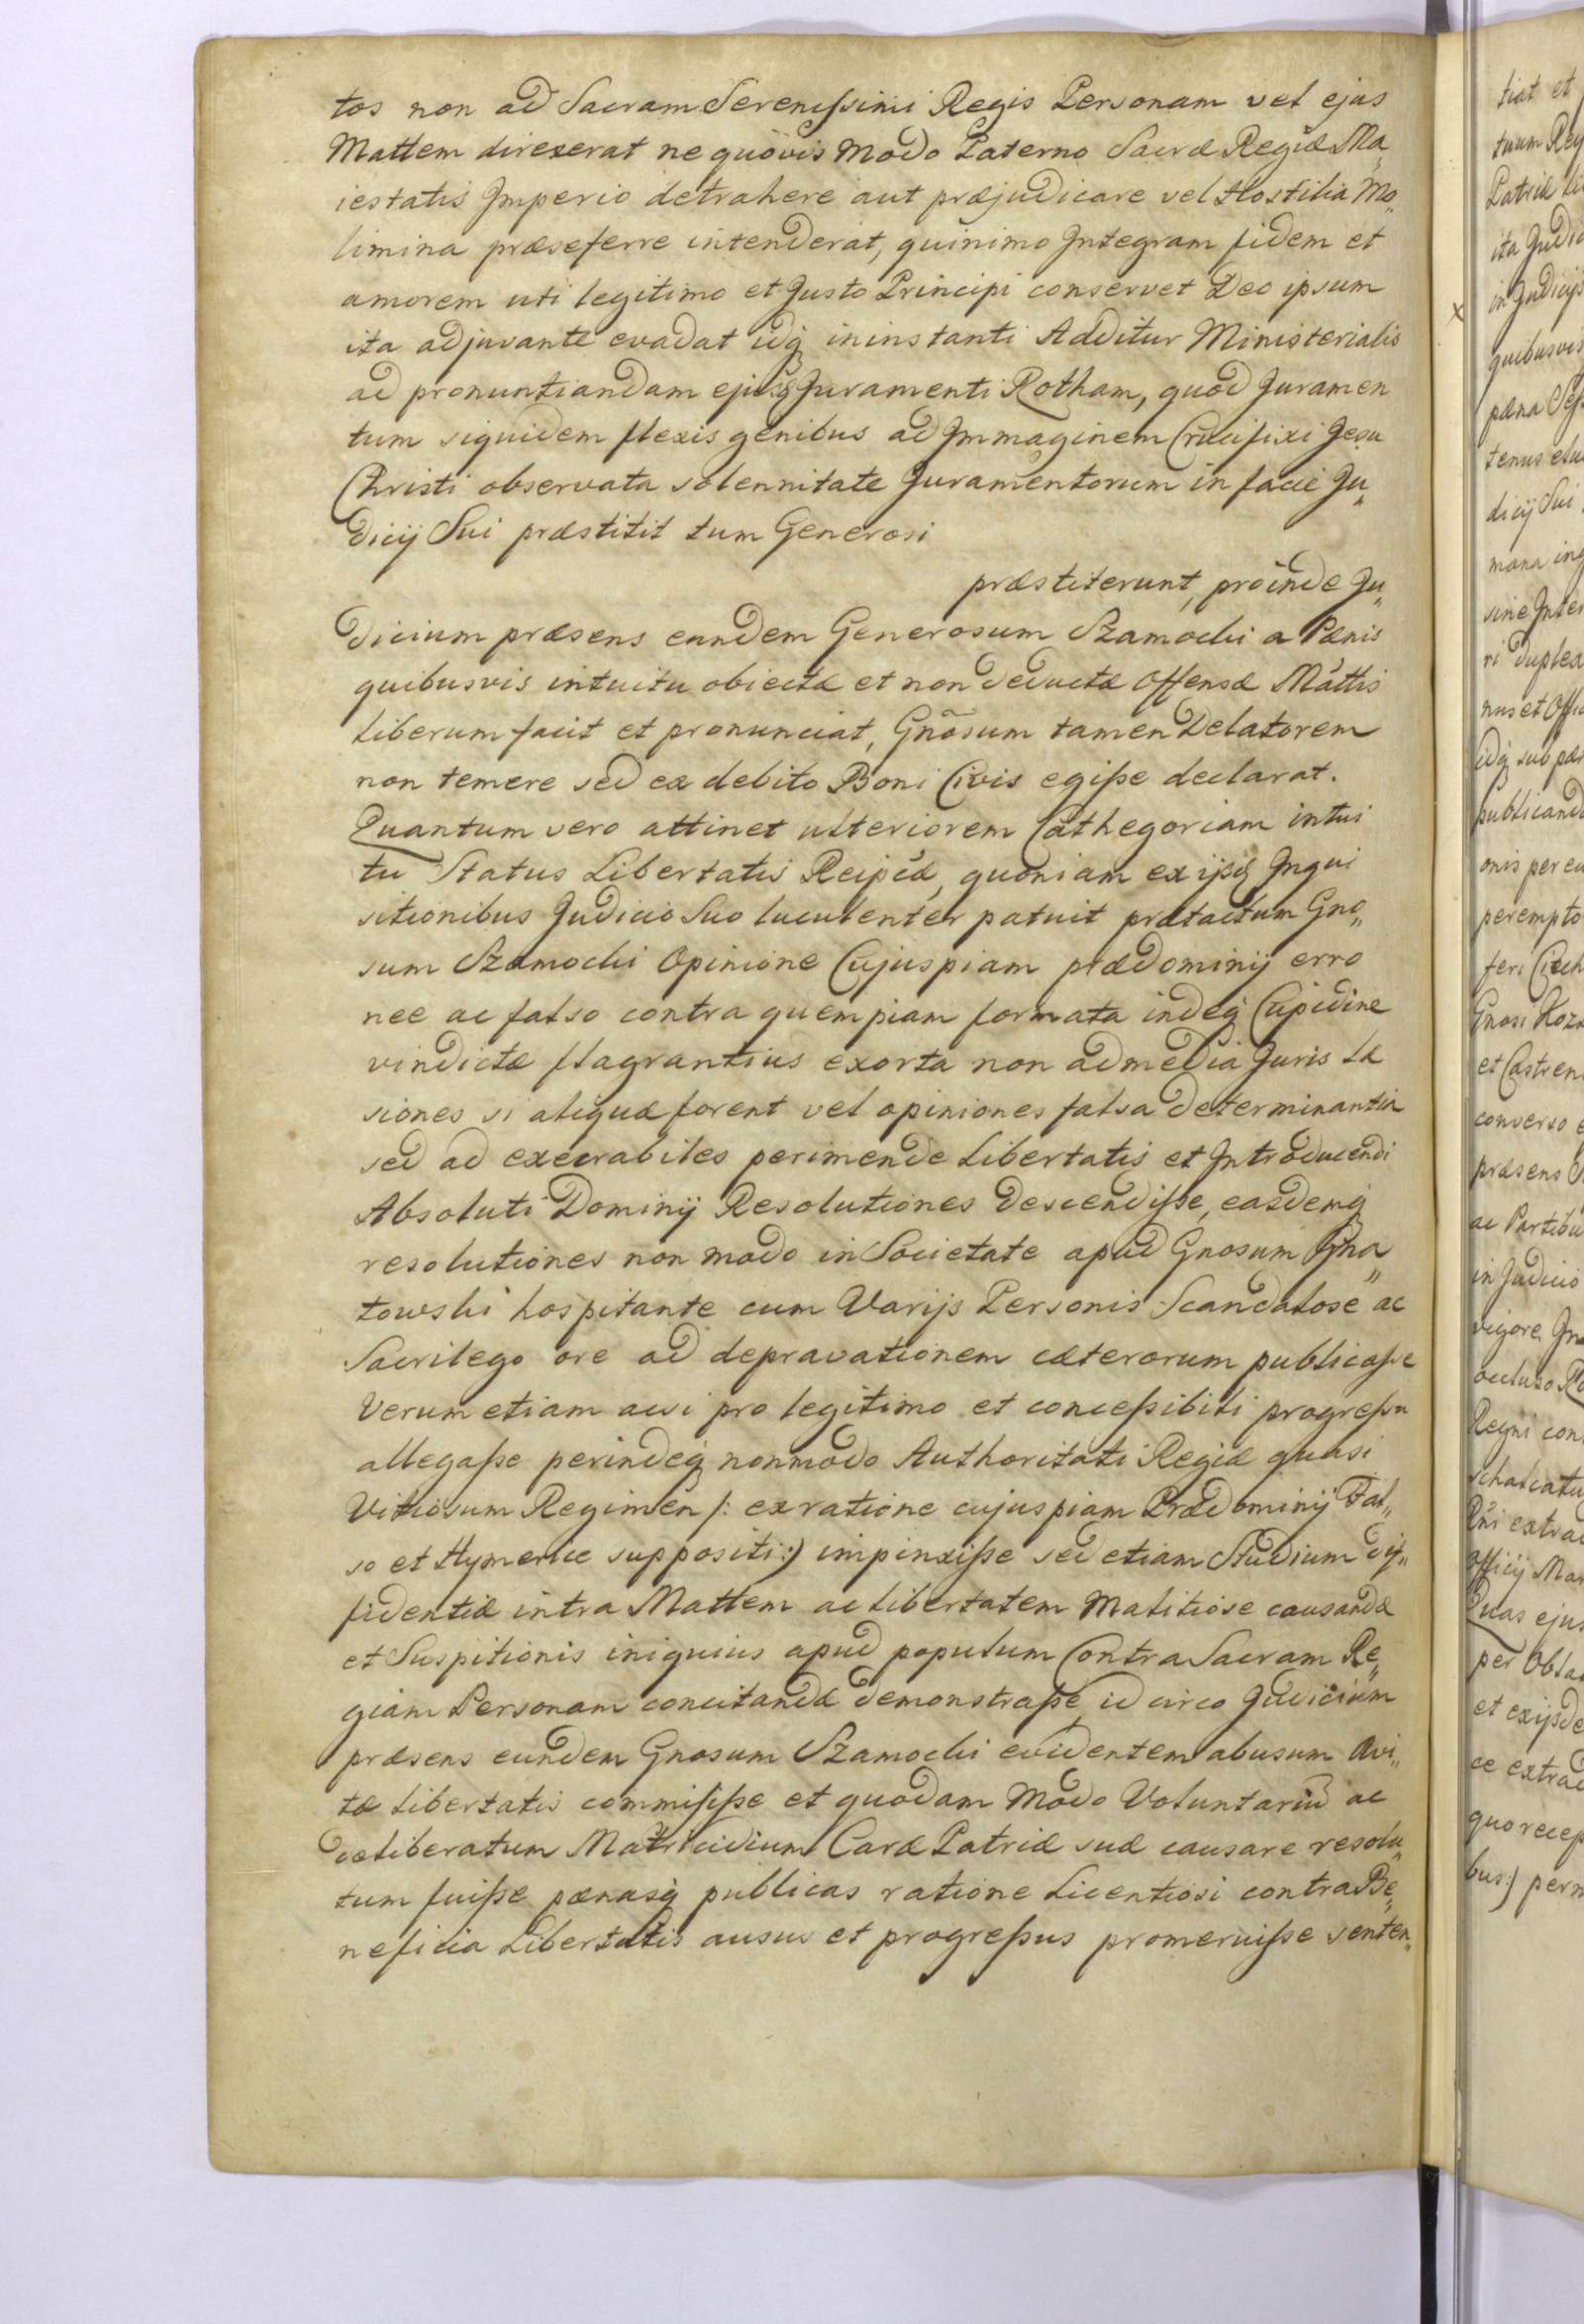 tos non ad Sacram Serenissimi Regis Personam vel ejus
Mattem direxerat ne quovis Modo Paterno Sacræ Regiæ Ma„
iestatis Imperio detrahere aut præjudicare vel Hostilia Mo„
limina præseferre intenderat, quinimo Integram fidem et
amorem uti legitimo et Justo Principi conservet Deo ipsum
ita adjuvante evadat idq in instanti Additur Ministerialis
ad pronuntiandam ejusq Juramenti Rotham, quod Juramen
tum siquidem flexis genibus ad Immaginem Crucifixi Jesu
Christi observata solennitate Juramentorum in facie Ju„
dicij Sui præstitit tum Generosi
præstiterunt, proinde Ju„
dicium præsens eundem Generosum Szamocki a Pænis
quibusvis intuitu obiectæ et non deductæ Offensæ Mattis
liberum facit et pronunciat, Gnõsum tamen Delatorem
non temere sed ex debito Boni Civis egisse declarat.
Quantum vero attinet ulteriorem Cathegoriam intui
tu Status Libertatis Reipcæ, quoniam ex ijsq Inqui
sitionibus Judicio Suo luculenter patuit prætactum Gno„
sum Szamocki Opinione Cujuspiam prædominij erro
nee ac falso contra quempiam formata indeq Cupidine
vindictæ flagrantius exorta non ad media Juris læ
siones si aliquæ forent vel opiniones falsa determinantia
sed ad execrabiles perimende Libertatis et Introducendi
Absoluti Dominij Resolutiones descendisse, easdemq
resolutiones non modo in Societate apud Gnosum Gna„
towski hospitante cum Varijs Personis Scandalose ac
Sacrilego ore ad depravationem cæterorum publicasse
Verum etiam acsi pro legitimo et concessibili progressu
allegasse perindeq nonmodo Authoritati Regiæ quasi
Vitiosum Regimen /: ex ratione cujuspiam Prædominij Fal„
so et Hymerice suppositi :/ impinxisse sed etiam Studium dif„
fidentiæ intra Mattem ac libertatem Malitiose causandæ
et Suspitionis iniquius apud populum Contra Sacram Re„
giam Personam concitandæ demonstrasse, id circo Judicium
præsens eundem Gnosum Szamocki evidentem abusum Avi„
tæ libertatis commisisse et quodam Modo Voluntariu ac
deliberatum Matricidium Caræ Patriæ suæ causare resolu„
tum fuisse pænasq publicas ratione Licentiosi contra Be„
neficia Libertatis ausus et progressus promeruisse senten„